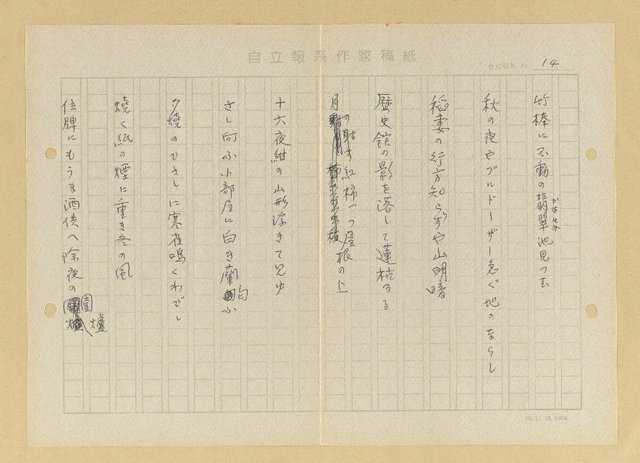 自立報系作家稿紙
14
竹棒に不動の翡翠池見つむ
かはせみ
秋の夜やブルドーザー急ぐ地のならし
稲妻の行方知らずや山明暗
歴史館の影を落して蓮枯るる
月の射す紅柿一つ屋根の上
十六夜紺の山形浮きて見ゆ
さし向ふ小部屋に白き蘭匂ふ
夕焼のひさしに寒雀鳴くわびし
焼く紙の煙に重き冬の風
位牌にもうま酒供へ除夜の
爐